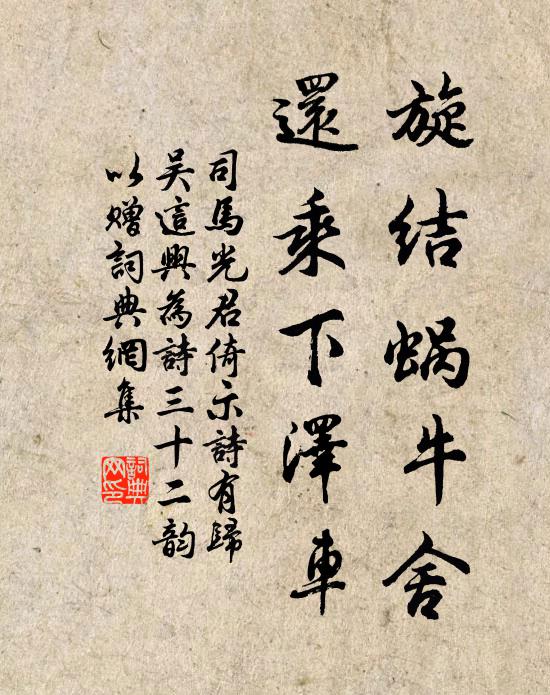 旋結蝸牛舍
還乘下澤車
司馬光君倚示詩有歸
吳這興為詩三十二韵
以贈詞典網集
詞典網印